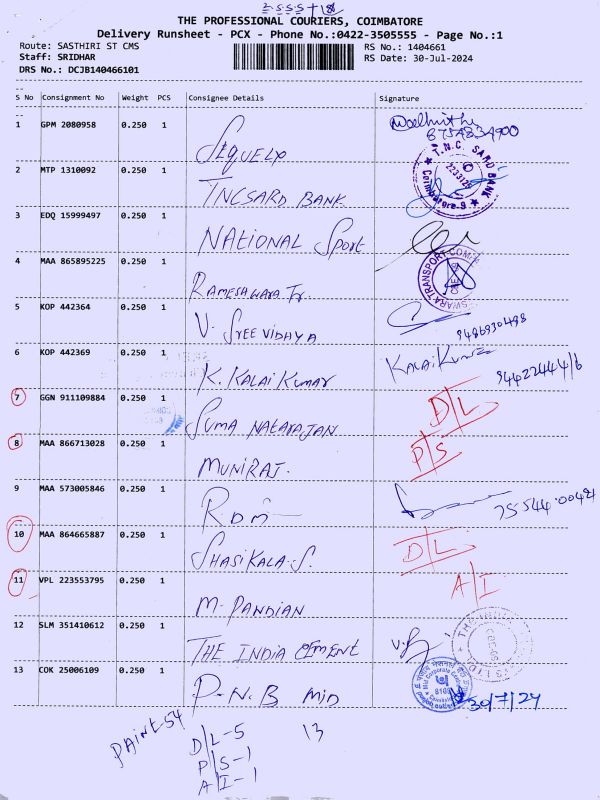 THE PROFESSIONAL COURIERS, COIMBATORE
Delivery Runsheet - PCX - Phone No.:0422-3505555 - Page No.:1
Route: SASTHIRI ST CMS RS No.: 1404661
Staff: SRIDHAR RS Date: 30-Jul-2024
DRS No.: DCJB140466101
S No Consignment No Weight PCS Consignee Details Signature
1 GPM 2080958 0.250 1 SEQUELP
8754834900
2 MTP 1310092 0.250 1 TNCSARD BANK T.N.C. SARD BANK Coimbatore-9
3 EDQ 15999497 0.250 1 NATIONAL Sport
4 MAA 865895225 0.250 1 RAMESHWARA Tr.
5 KOP 442364 0.250 1 V. SREEVIDHYA 9486930498
6 KOP 442369 0.250 1 K. KALAI KUMAR KALAIKUMAR
7 GGN 911109884 0.250 1 SUMA NATARAJAN D/L
8 MAA 866713028 0.250 1 MUNIRAJ. P/S
9 MAA 573005846 0.250 1 RDM
10 MAA 864665887 0.250 1 SHASIKALA.S. D/L
11 VPL 223553795 0.250 1 M. PANDIAN A/I
12 SLM 351410612 0.250 1 THE INDIA CEMENT
13 COK 25006109 0.250 1 P.N.B MID 30/7/24
PAINT-54
D/L-5 13
P/S-1
A/I-1